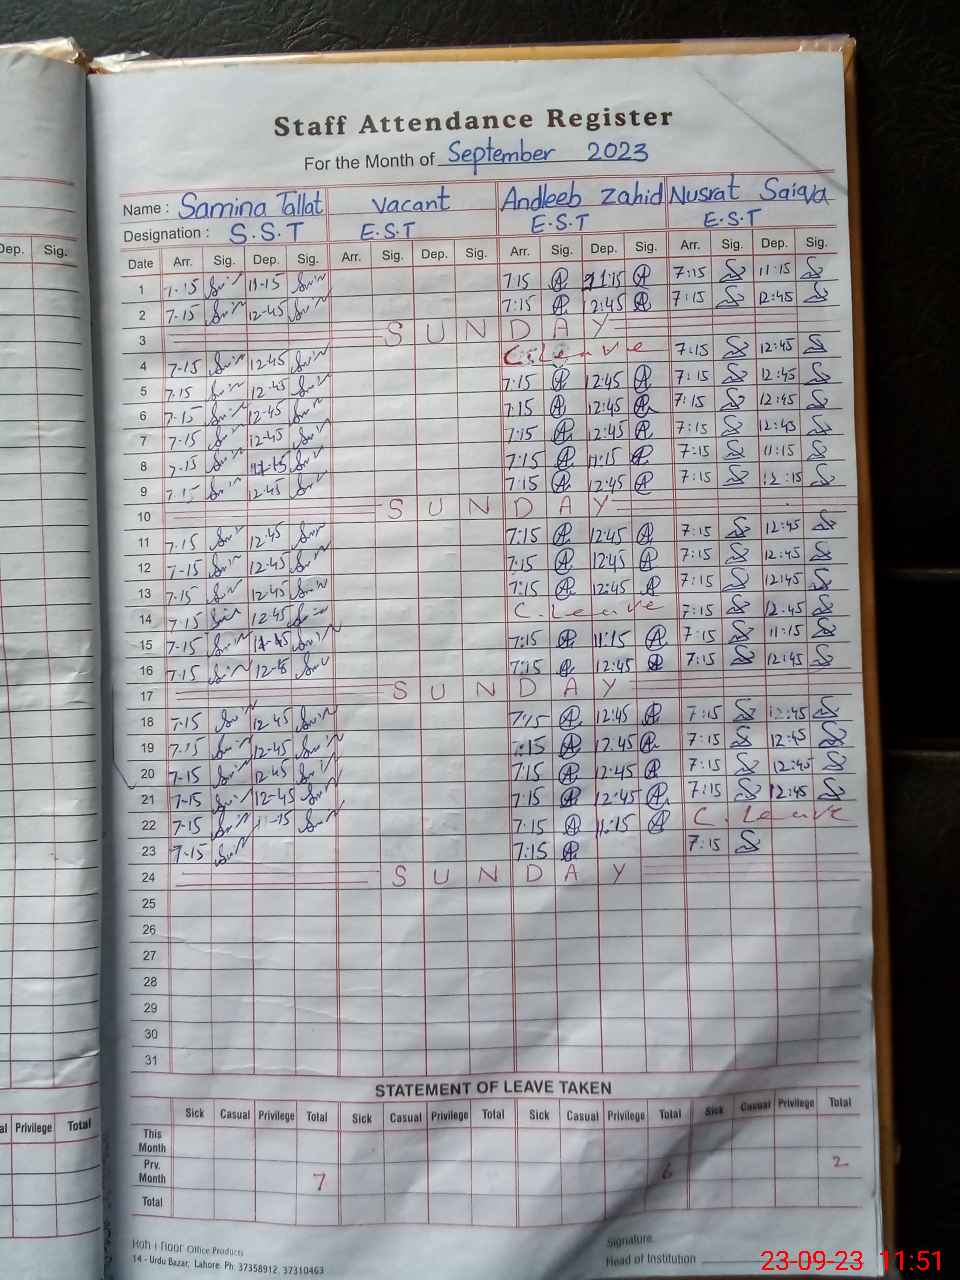 Staff Attendance Register
For the Month of September 2023
Name : Samina Tallat Vacant Andleeb Zahid Nusrat Saiqa
Designation : S.S.T E.S.T E.S.T E.S.T
Dep. Sig. Date Arr. Sig. Dep. Sig. Arr. Sig. Dep. Sig. Arr. Sig. Dep. Sig. Arr. Sig. Dep. Sig.
1 7-15 11-15 7:15 11:15 7:15 11:15
2 7-15 12-45 7:15 12:45 7:15 12:45
3 SUNDAY
4 7-15 12-45 C.Leave 7:15 12:45
5 7.15 12-45 7:15 12:45 7:15 12:45
6 7-15 12-45 7:15 12:45 7:15 12:45
7 7-15 12-45 7:15 12:45 7:15 12:45
8 7-15 7:15 11:15 7:15 11:15
9 7.15 12.45 7:15 12:45 7:15
10 SUNDAY
11 7.15 12-45 7:15 12:45 7:15 12:45
12 7-15 12-45 7:15 12:45 7:15 12:45
13 7-15 12-45 7:15 12:45 7:15 12:45
14 7-15 12.45 C.Leave 7:15 12:45
15 7-15 7:15 11:15 7:15 11:15
16 7.15 7:15 12:45 7:15 12:45
17 SUNDAY
18 7-15 12-45 7:15 12:45 7:15 12:45
19 7-15 12-45 7:15 12:45 7:15 12:45
20 7-15 12-45 7:15 12:45 7:15 12:45
21 7-15 12-45 7:15 12:45 7:15 12:45
22 7-15 11-15 7:15 11:15 C.Leave
23 7-15 7:15 7:15
24 SUNDAY
25
26
27
28
29
30
31
STATEMENT OF LEAVE TAKEN
Privilege Total Sick Casual Privilege Total Sick Casual Privilege Total Sick Casual Privilege Total Sick Casual Privilege Total
This Month
Prv. Month 7 6 2
Total
Koh i noor Office Products
14 - Urdu Bazar, Lahore. Ph: 37358912, 37310463
Signature
Head of Institution
23-09-23 11:51